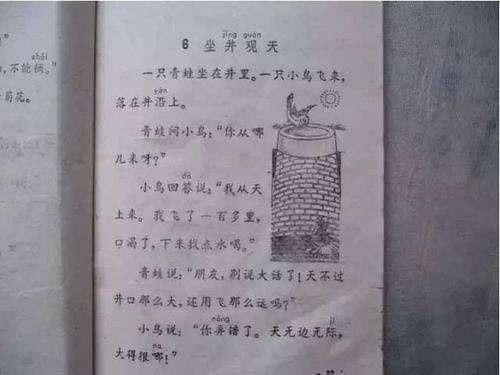 zhāi
，不能摘。
菊花。
jǐng guān
6 坐井观天
一只青蛙坐在井里。一只小鸟飞来，
yán
落在井沿上。
青蛙问小鸟：“你从哪
儿来呀？”
dá
小鸟回答说：“我从天
上来。我飞了一百多里，
口渴了，下来找点水喝。”
青蛙说：“朋友，别说大话了！天不过
井口那么大，还用飞那么远吗？”
nòng jì
小鸟说：“你弄错了。天无边无际，
na
大得很哪！”